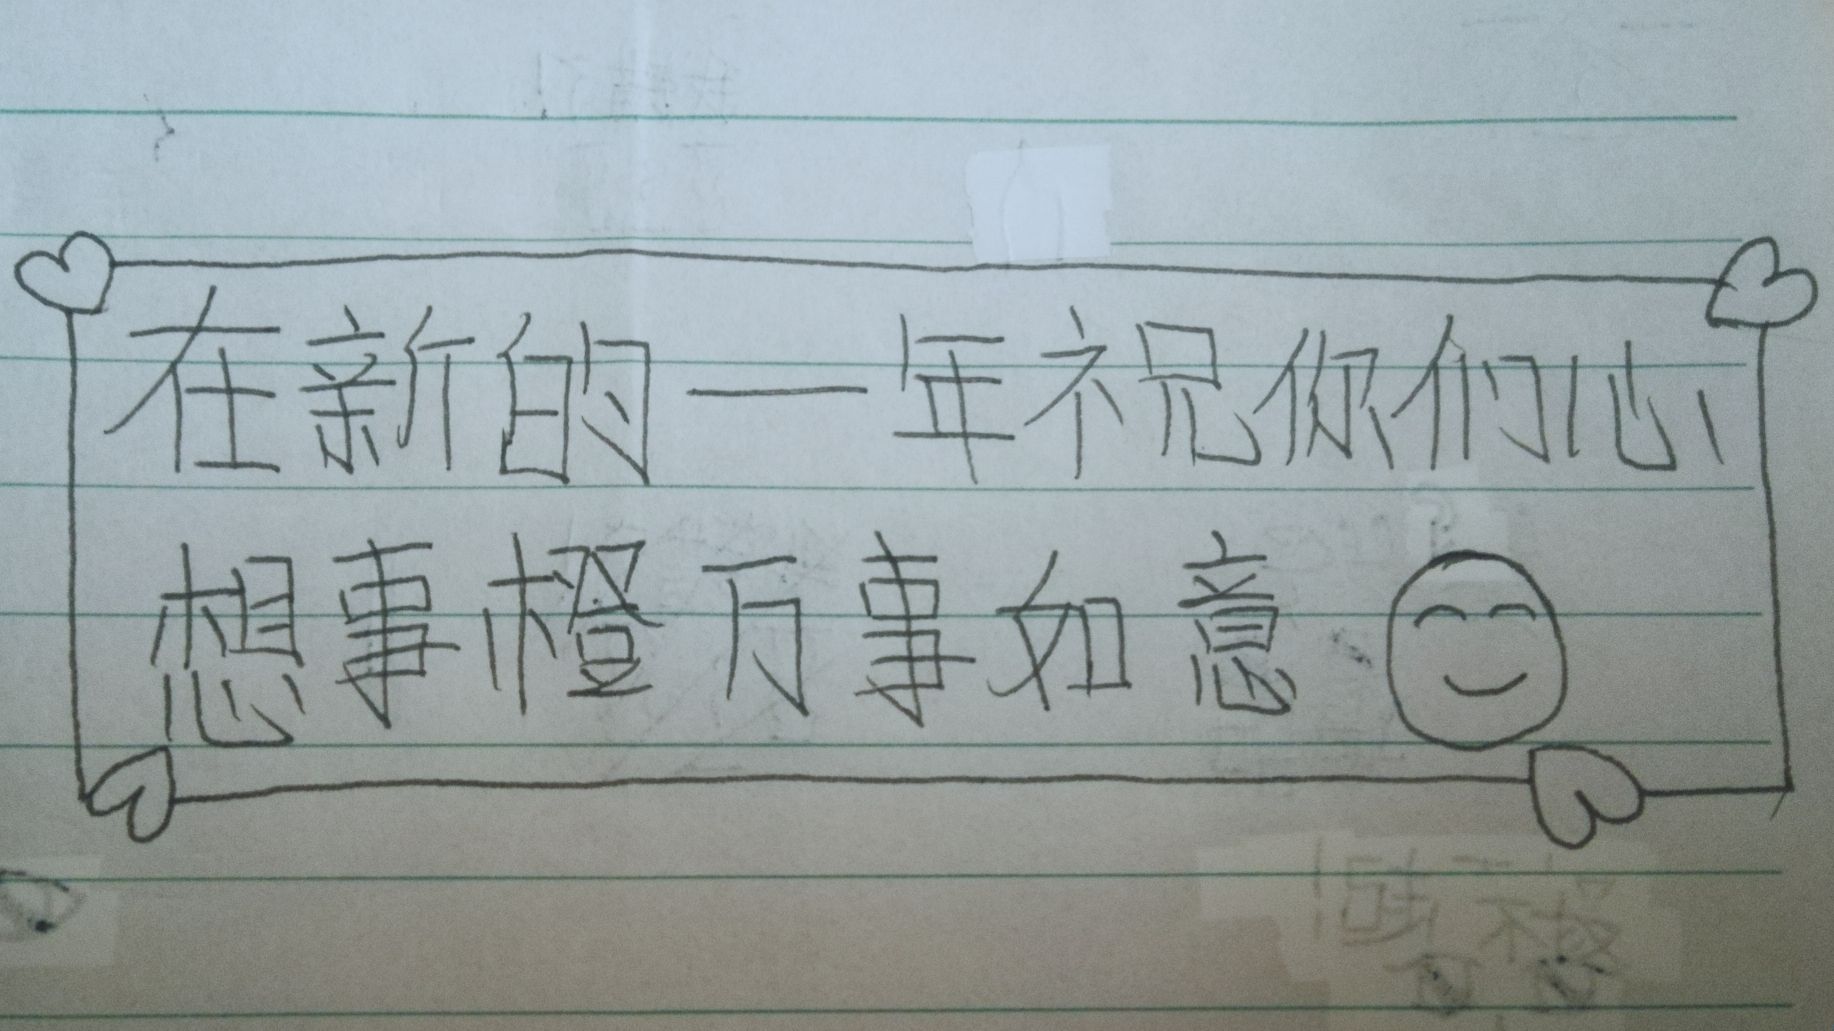 在新的一年祝你们心
想事橙万事如意